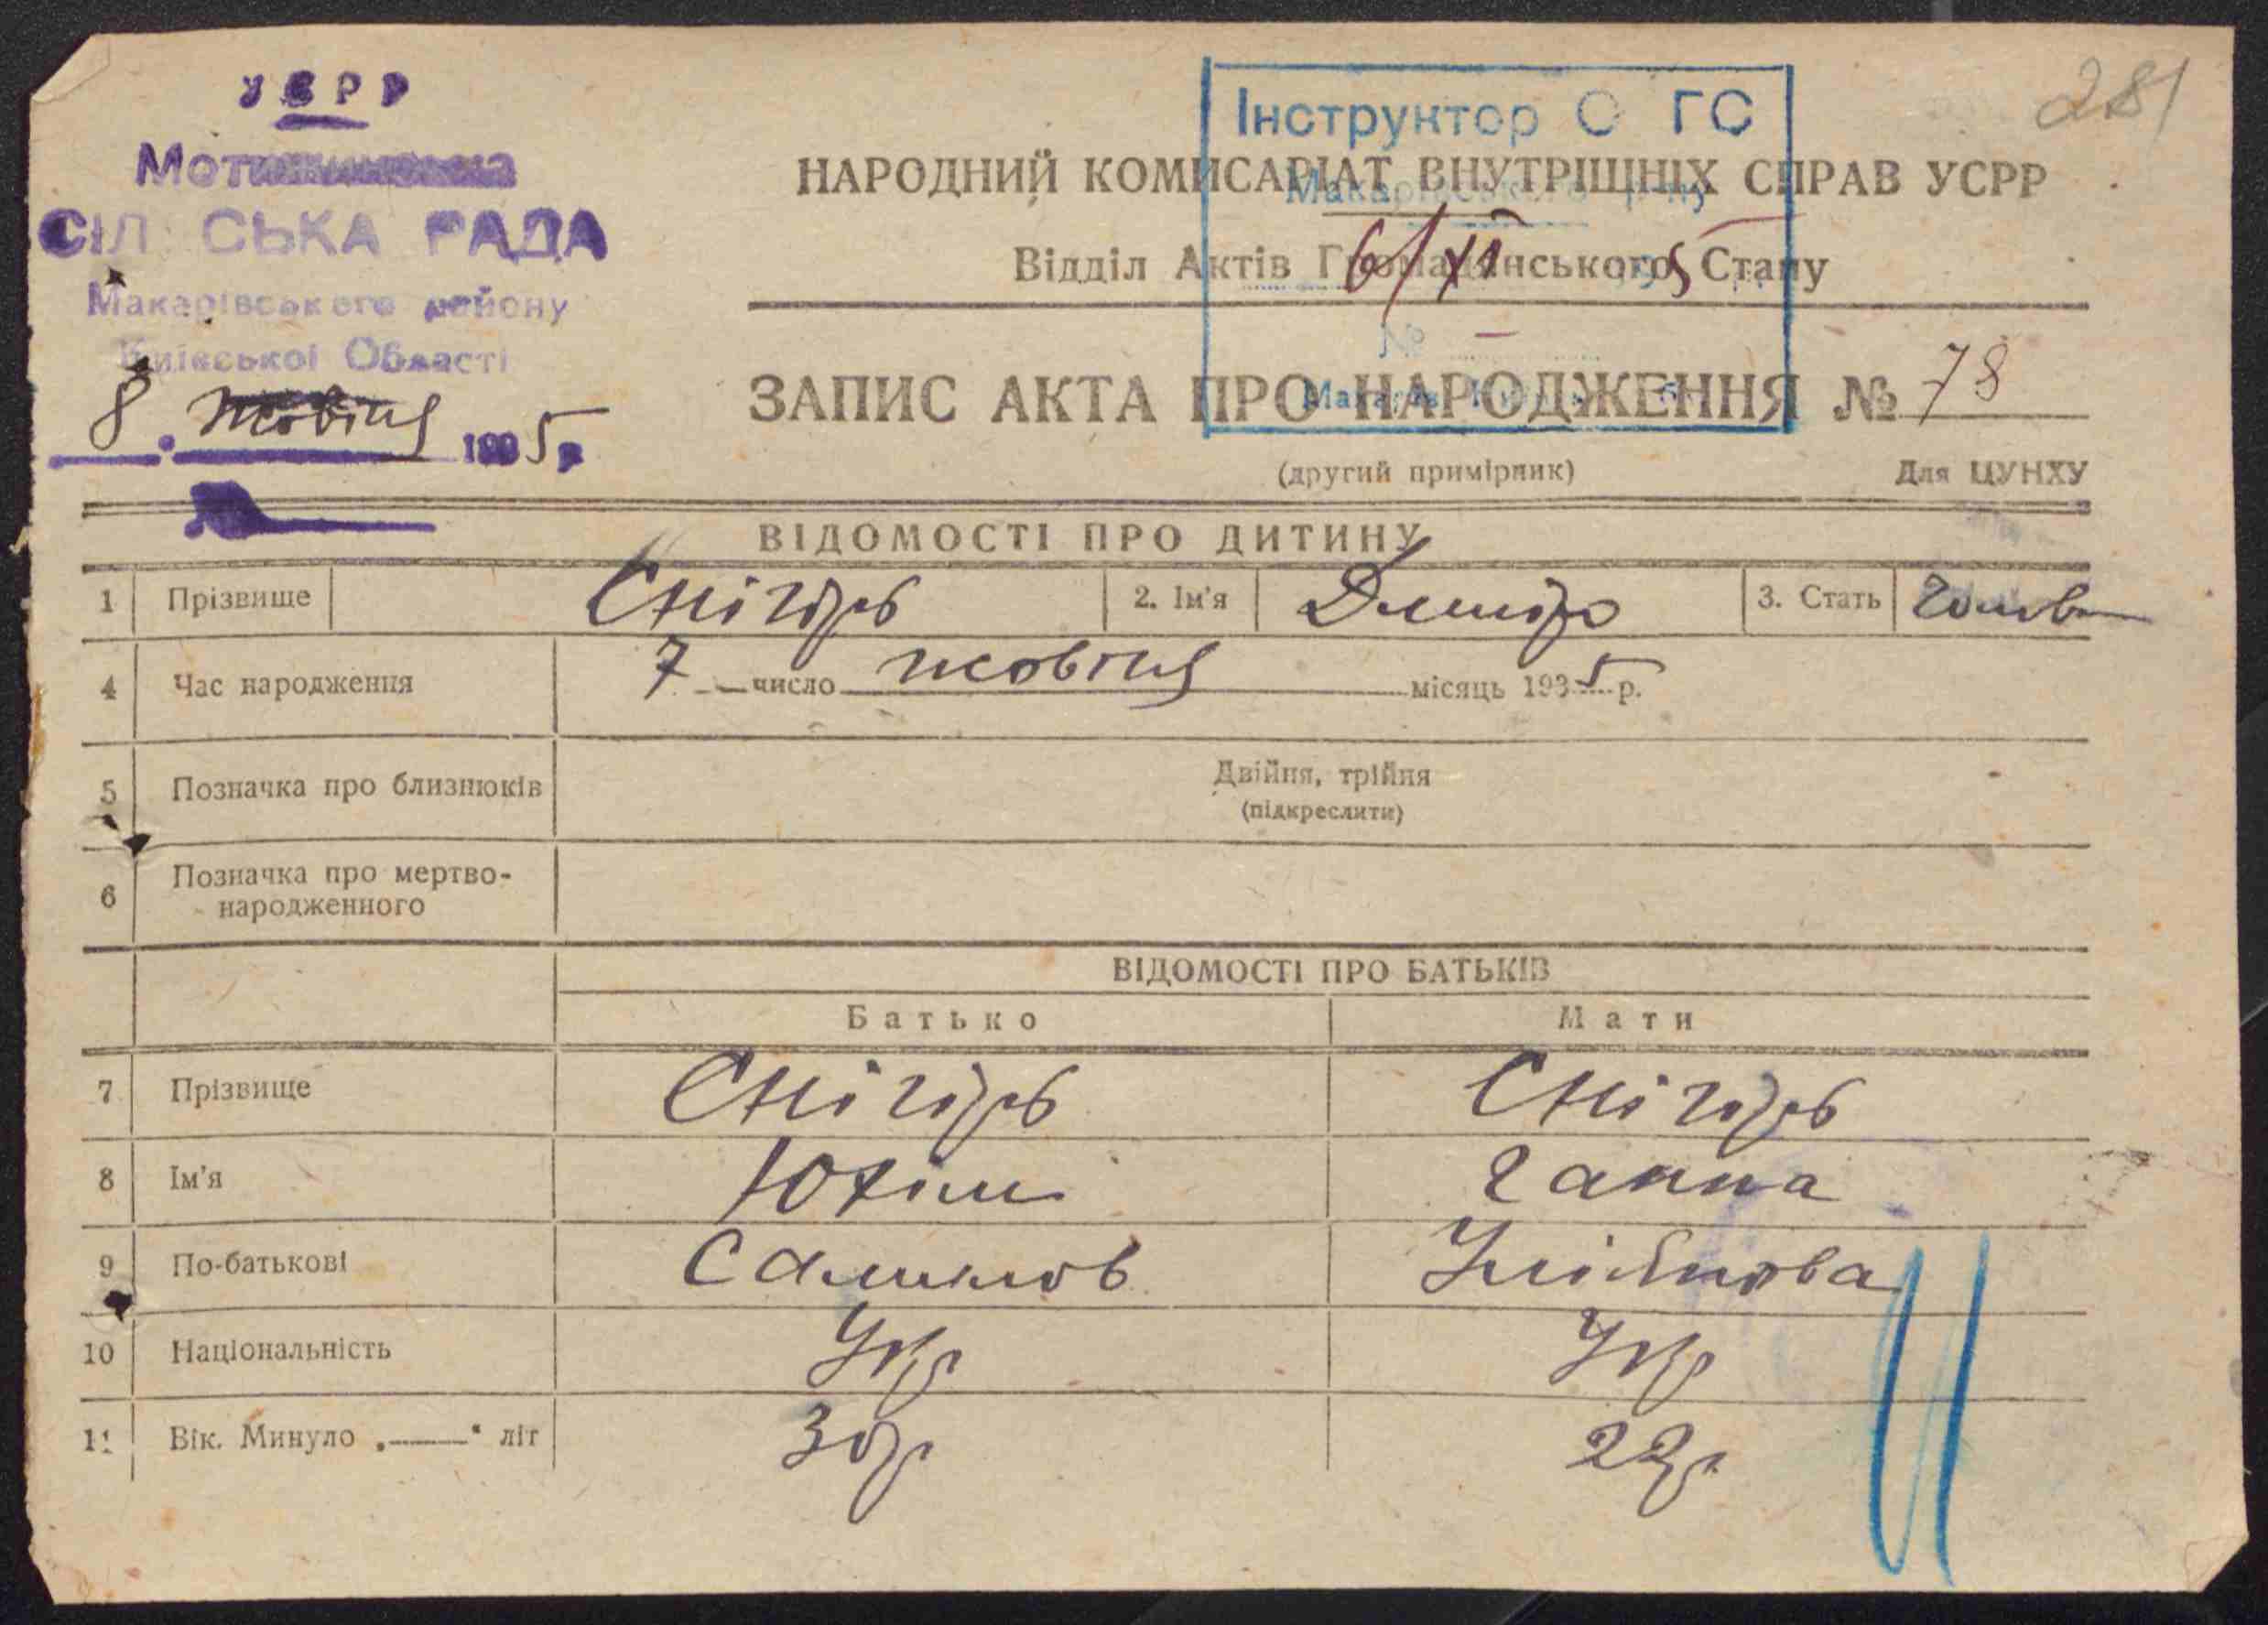 УСРР
СІЛЬСЬКА РАДА
Макарівського району
Київської Області
8 жовтня 1935 р
281
Інструктор ГС
Макарівського р-ну
6/XI 5
№ –
НАРОДНИЙ КОМІСАРІАТ ВНУТРІШНІХ СПРАВ УСРР
Відділ Актів Громадянського Стану
ЗАПИС АКТА ПРО НАРОДЖЕННЯ № 78
(другий примірник) Для ЦУНХУ
ВІДОМОСТІ ПРО ДИТИНУ
1 Прізвище Снігірь 2. Ім'я Дмитро 3. Стать
4 Час народження 7 число жовтня місяць 1935 р.
5 Позначка про близнюків Двійня, трійня
(підкреслити)
6 Позначка про мертво-
народженного
ВІДОМОСТІ ПРО БАТЬКІВ
Батько Мати
7 Прізвище Снігірь Снігірь
8 Ім'я Юхим Ганна
9 По-батькові
10 Національність Укр Укр
11 Вік. Минуло „——“ літ 30р 22р